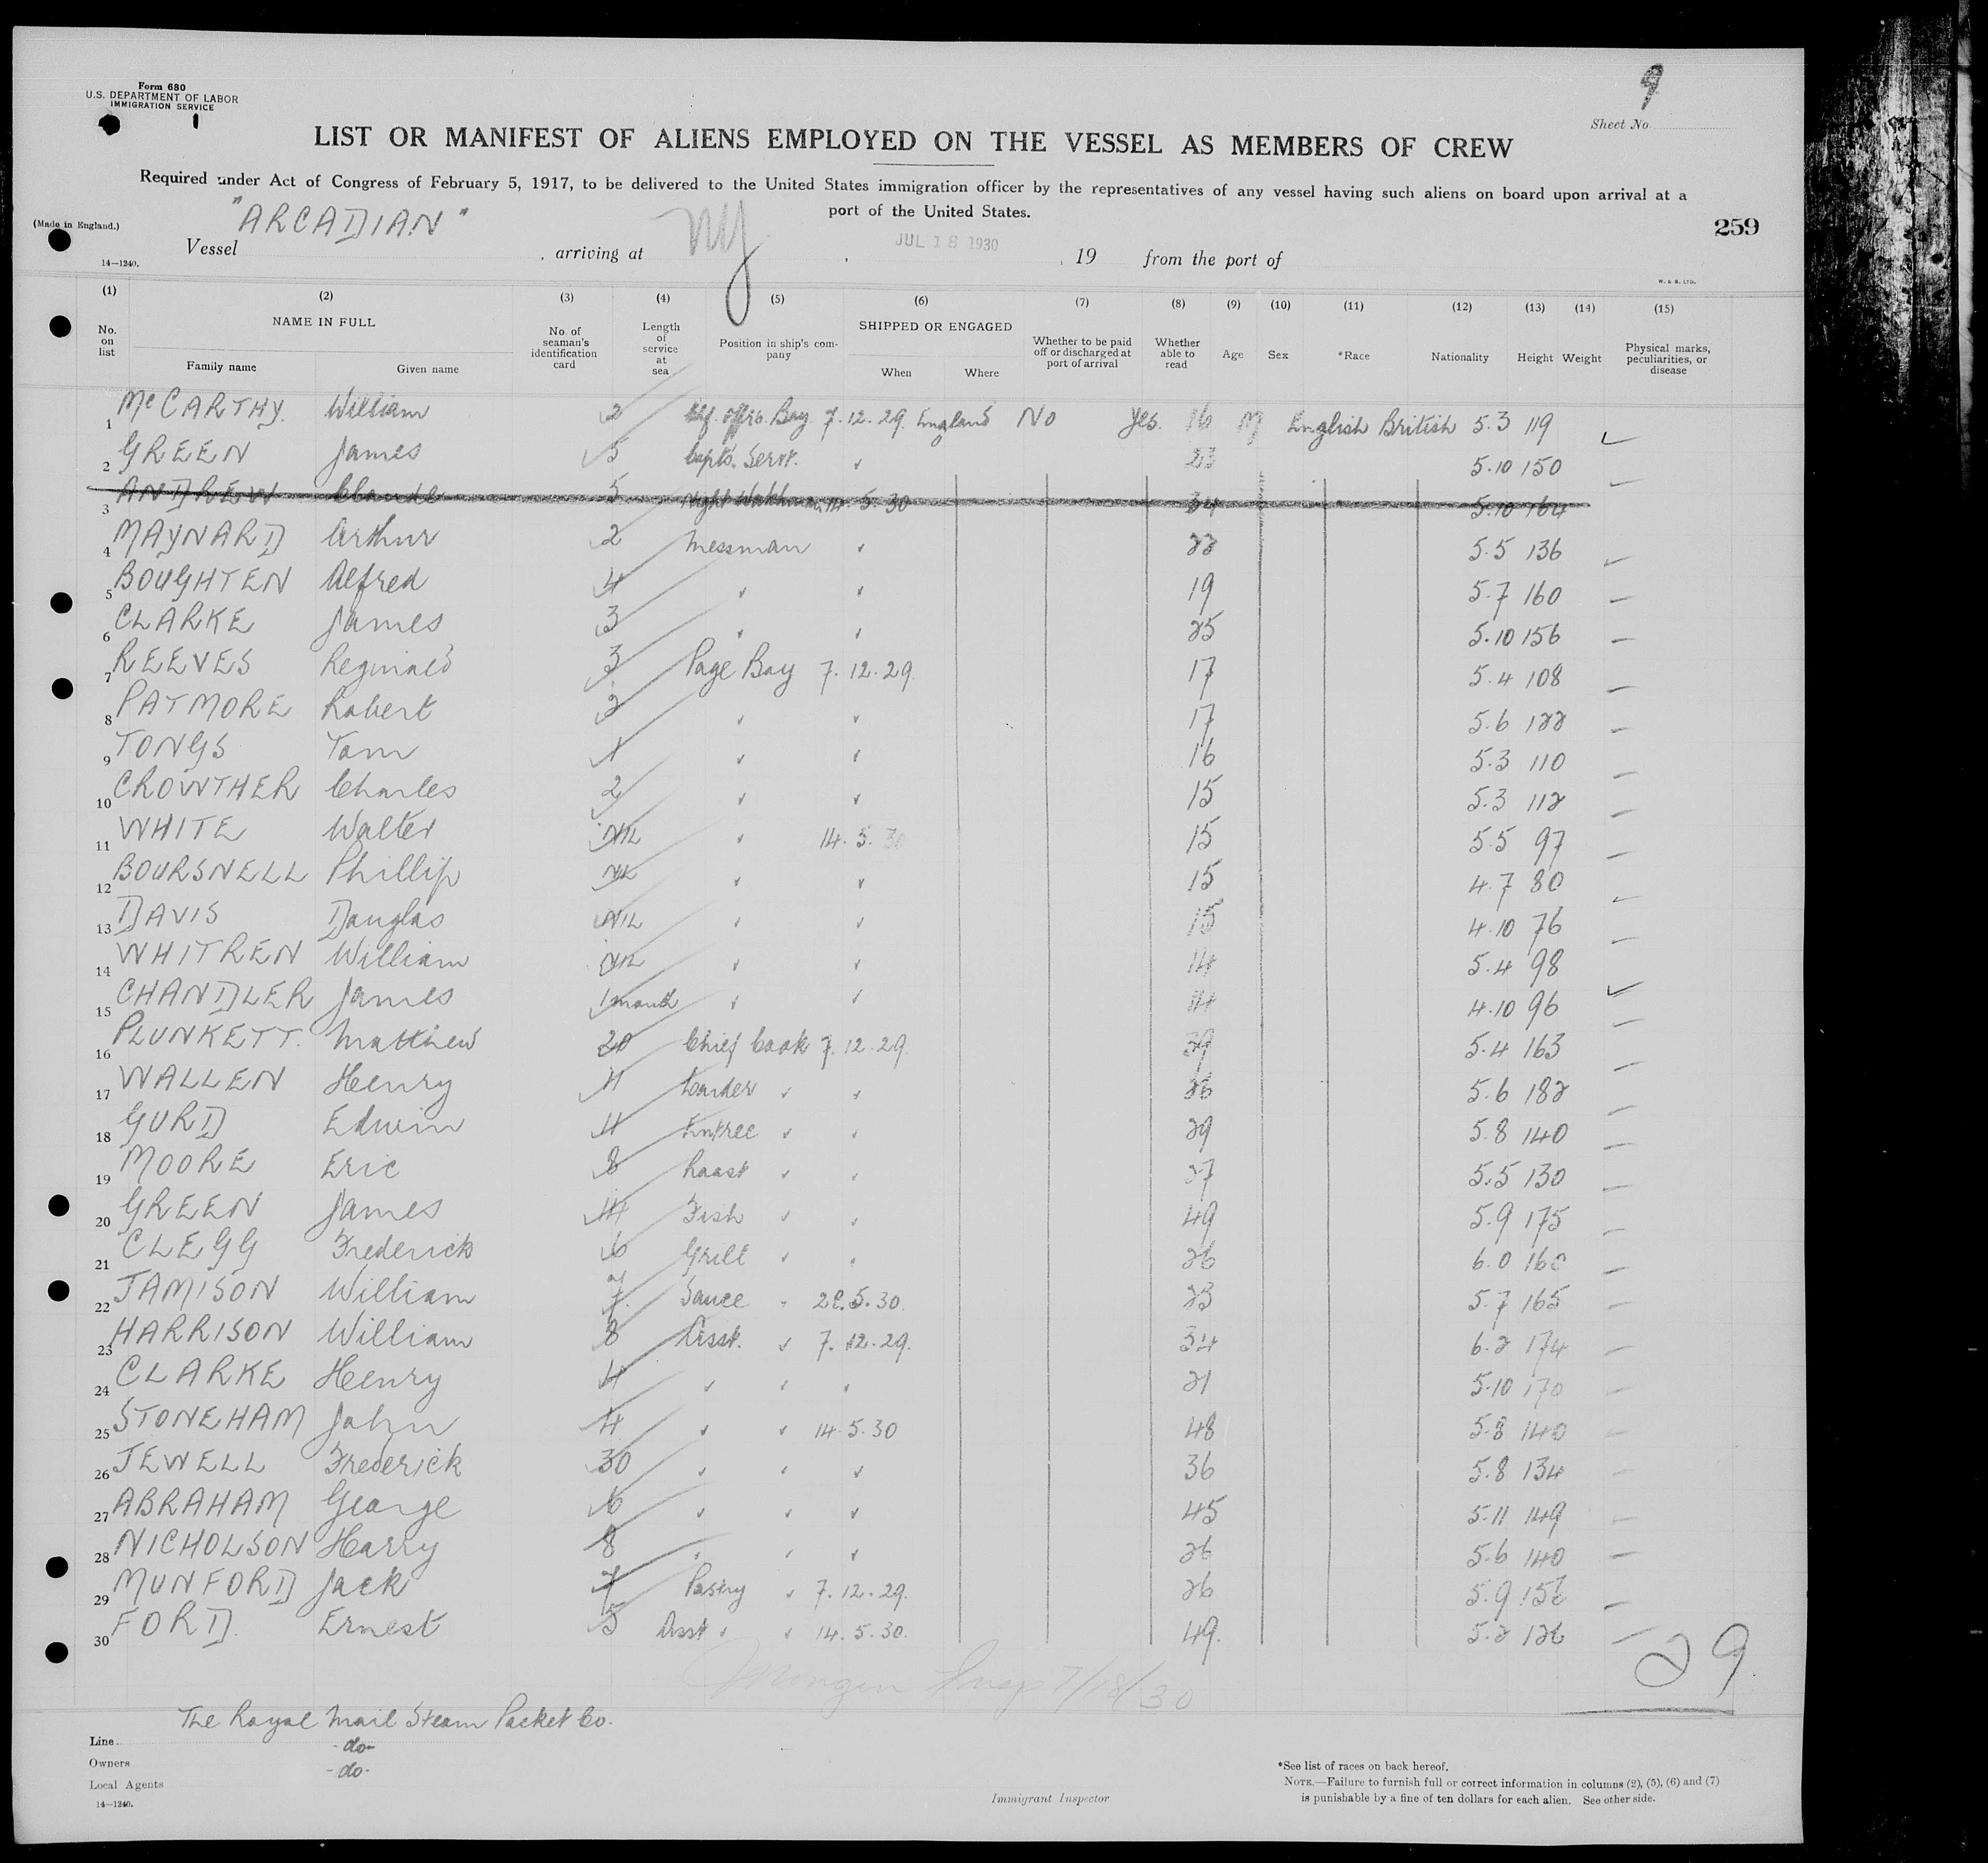 Form 680
U.S. DEPARTMENT OF LABOR
IMMIGRATION SERVICE
9
Sheet No.
LIST OR MANIFEST OF ALIENS EMPLOYED ON THE VESSEL AS MEMBERS OF CREW
Required under Act of Congress of February 5, 1917, to be delivered to the United States immigration officer by the representatives of any vessel having such aliens on board upon arrival at a
port of the United States.
(Made in England.)
259
Vessel "ARCADIAN", arriving at NY, JUL 18 1930, 19 from the port of
14—1240.
W. & S. LTD.
(1) (2) (3) (4) (5) (6) (7) (8) (9) (10) (11) (12) (13) (14) (15)
No. on list NAME IN FULL Family name Given name No. of seaman's identification card Length of service at sea Position in ship's company SHIPPED OR ENGAGED When Where Whether to be paid off or discharged at port of arrival Whether able to read Age Sex *Race Nationality Height Weight Physical marks, peculiarities, or disease
1 McCARTHY. William 2 Boy 7.12.29. England No yes. 16 M English British 5.3 119
2 GREEN James 5 Capts. Servt. ✓ 23 5.10 150
3 ANDREW Claude 5 Night Watchman 14.5.30 34 5.10 164
4 MAYNARD Arthur 2 Messman ✓ 22 5.5 136
5 BOUGHTEN Alfred 4 ✓ ✓ 19 5.7 160
6 CLARKE James 3 ✓ ✓ 25 5.10 156
7 REEVES Reginald 3 Page Boy 7.12.29. 17 5.4 108
8 PATMORE Robert 2 ✓ ✓ 17 5.6 122
9 TONGS Tom 1 ✓ ✓ 16 5.3 110
10 CROWTHER Charles 2 ✓ ✓ 15 5.3 112
11 WHITE Walter NIL ✓ 14.5.30 15 5.5 97
12 BOURSNELL Phillip NIL ✓ ✓ 15 4.7 80
13 DAVIS Douglas NIL ✓ ✓ 15 4.10 76
14 WHITREN William NIL ✓ ✓ 14 5.4 98
15 CHANDLER James 1 month ✓ ✓ 14 4.10 96
16 PLUNKETT. Matthew 20 Chief Cook 7.12.29. 39 5.4 163
17 WALLEN Henry 11 Larder ✓ ✓ 26 5.6 182
18 GURD Edwin 11 Entree ✓ ✓ 29 5.8 140
19 MOORE Eric 8 Roast ✓ ✓ 27 5.5 130
20 GREEN James 14 Fish ✓ ✓ 49 5.9 175
21 CLEGG Frederick 6 Grill ✓ ✓ 26 6.0 160
22 JAMISON William 7 Sauce ✓ 5.30. 23 5.7 165
23 HARRISON William 8 Asst. ✓ 7.12.29. 34 6.2 174
24 CLARKE Henry 4 ✓ ✓ ✓ 21 5.10 170
25 STONEHAM John 4 ✓ ✓ 14.5.30 48 5.8 140
26 JEWELL Frederick 30 ✓ ✓ ✓ 36 5.8 134
27 ABRAHAM George 6 ✓ ✓ ✓ 45 5.11 149
28 NICHOLSON Harry 8 ✓ ✓ ✓ 26 5.6 140
29 MUNFORD Jack 7 Pastry ✓ 7.12.29. 26 5.9
30 FORD. Ernest 5 Asst ✓ ✓ 14.5.30. 49. 5.2 126
29
Insp 7/18/30
Line The Royal Mail Steam Packet Co.
Owners -do-
Local Agents -do-
14—1240.
Immigrant Inspector
*See list of races on back hereof.
NOTE.—Failure to furnish full or correct information in columns (2), (5), (6) and (7)
is punishable by a fine of ten dollars for each alien. See other side.